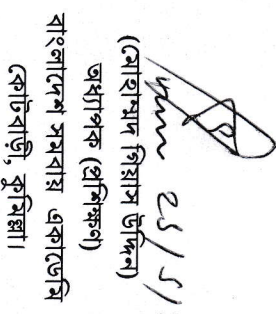 ২৫/৫/
(মোহাম্মদ গিয়াস উদ্দিন)
অধ্যাপক (প্রশিক্ষণ)
বাংলাদেশ সমবায় একাডেমি
কোটবাড়ী, কুমিল্লা।